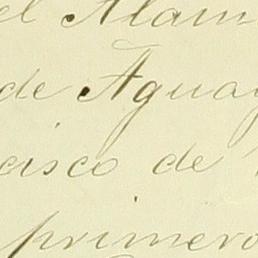 el Alam
de Aguay
cisco de
primero